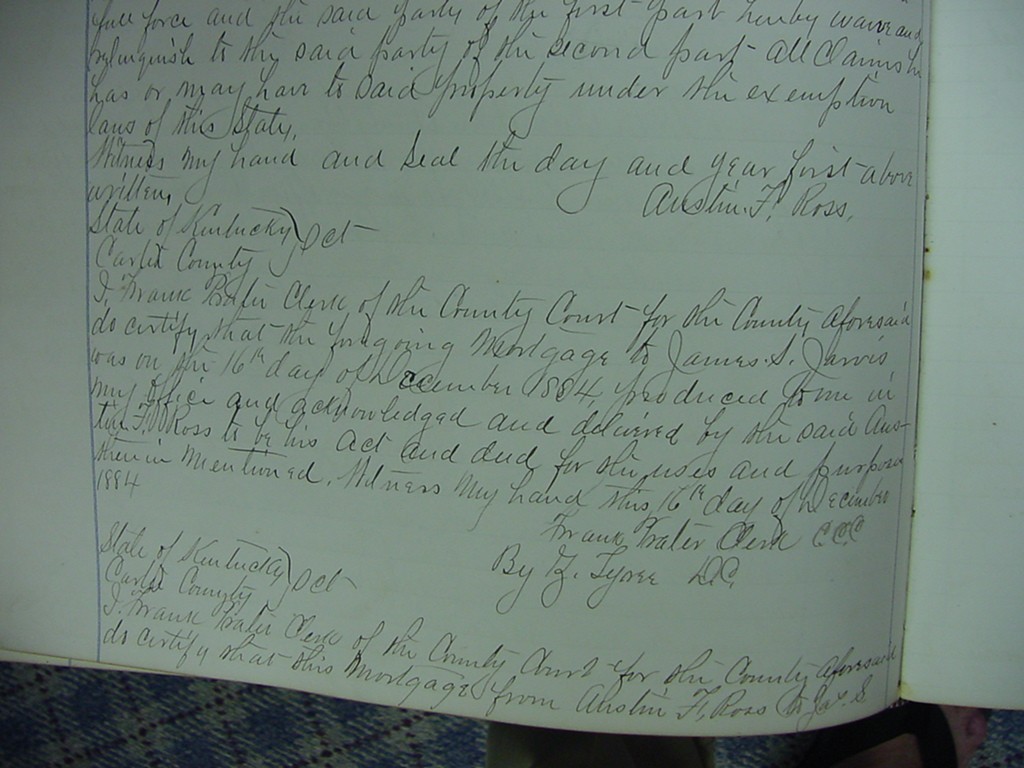 full force and the said party of the first part hereby waive and
relinquish to the said party of the second part all claims he
has or may have to said property under the exemption
laws of this State,
Witness my hand and seal the day and year first above
written,
Austin. F. Ross,
State of Kentucky) Sct
Carter County
I, Frank Prater Clerk of the County Court for the County aforesaid
do certify that the foregoing Mortgage to James. S. Jarvis
was on the 16th day of December 1884, produced to me in
my office and acknowledged and delivered by the said Aus-
tin F. Ross to be his act and deed, for the uses and purposes
therein mentioned. Witness my hand this, 16th day of December
1884
Frank Prater Clerk CCC
By Z. Tyree D.C.
State of Kentucky) Sct
Carter County
I. Frank Prater Clerk of the County Court for the County aforesaid
do certify that this Mortgage from Austin F, Ross to Ja's. S